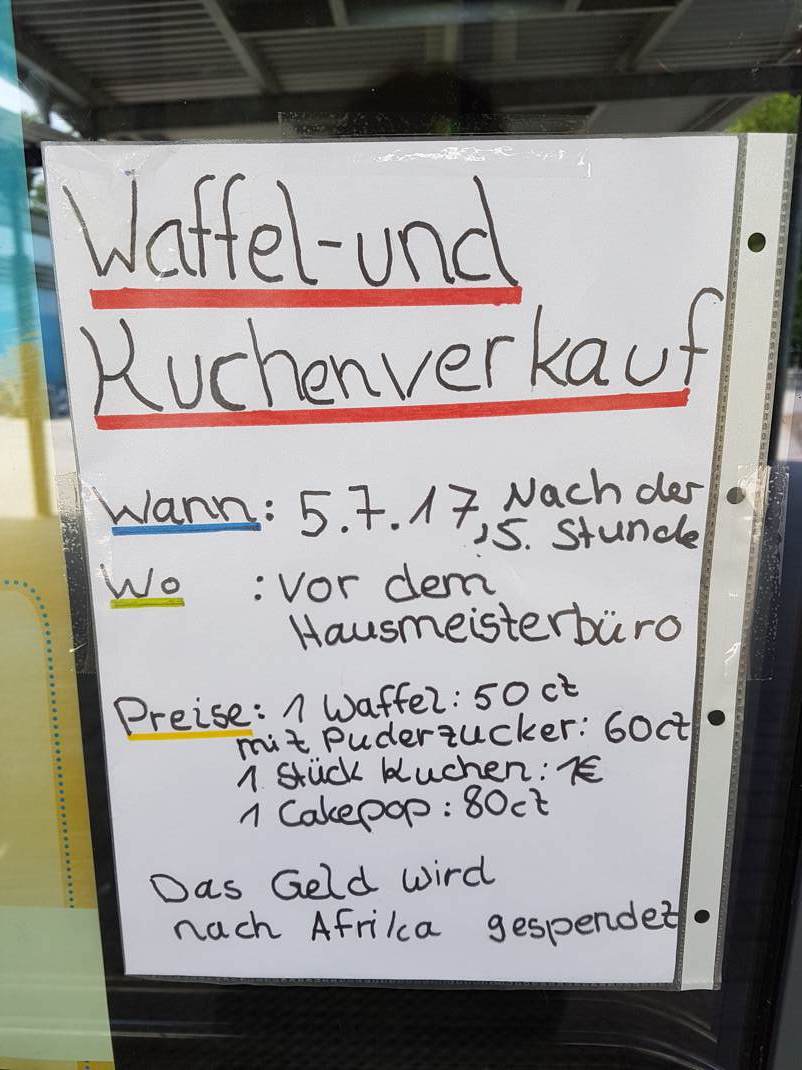 Waffel-und
Kuchenverkauf
Wann: 5.7.17, Nach der
5. Stunde
Wo : vor dem
Hausmeisterbüro
Preise: 1 Waffel: 50 ct
mit Puderzucker: 60ct
1 Stück Kuchen: 1€
1 Cakepop: 80ct
Das Geld wird
nach Afrika gespendet